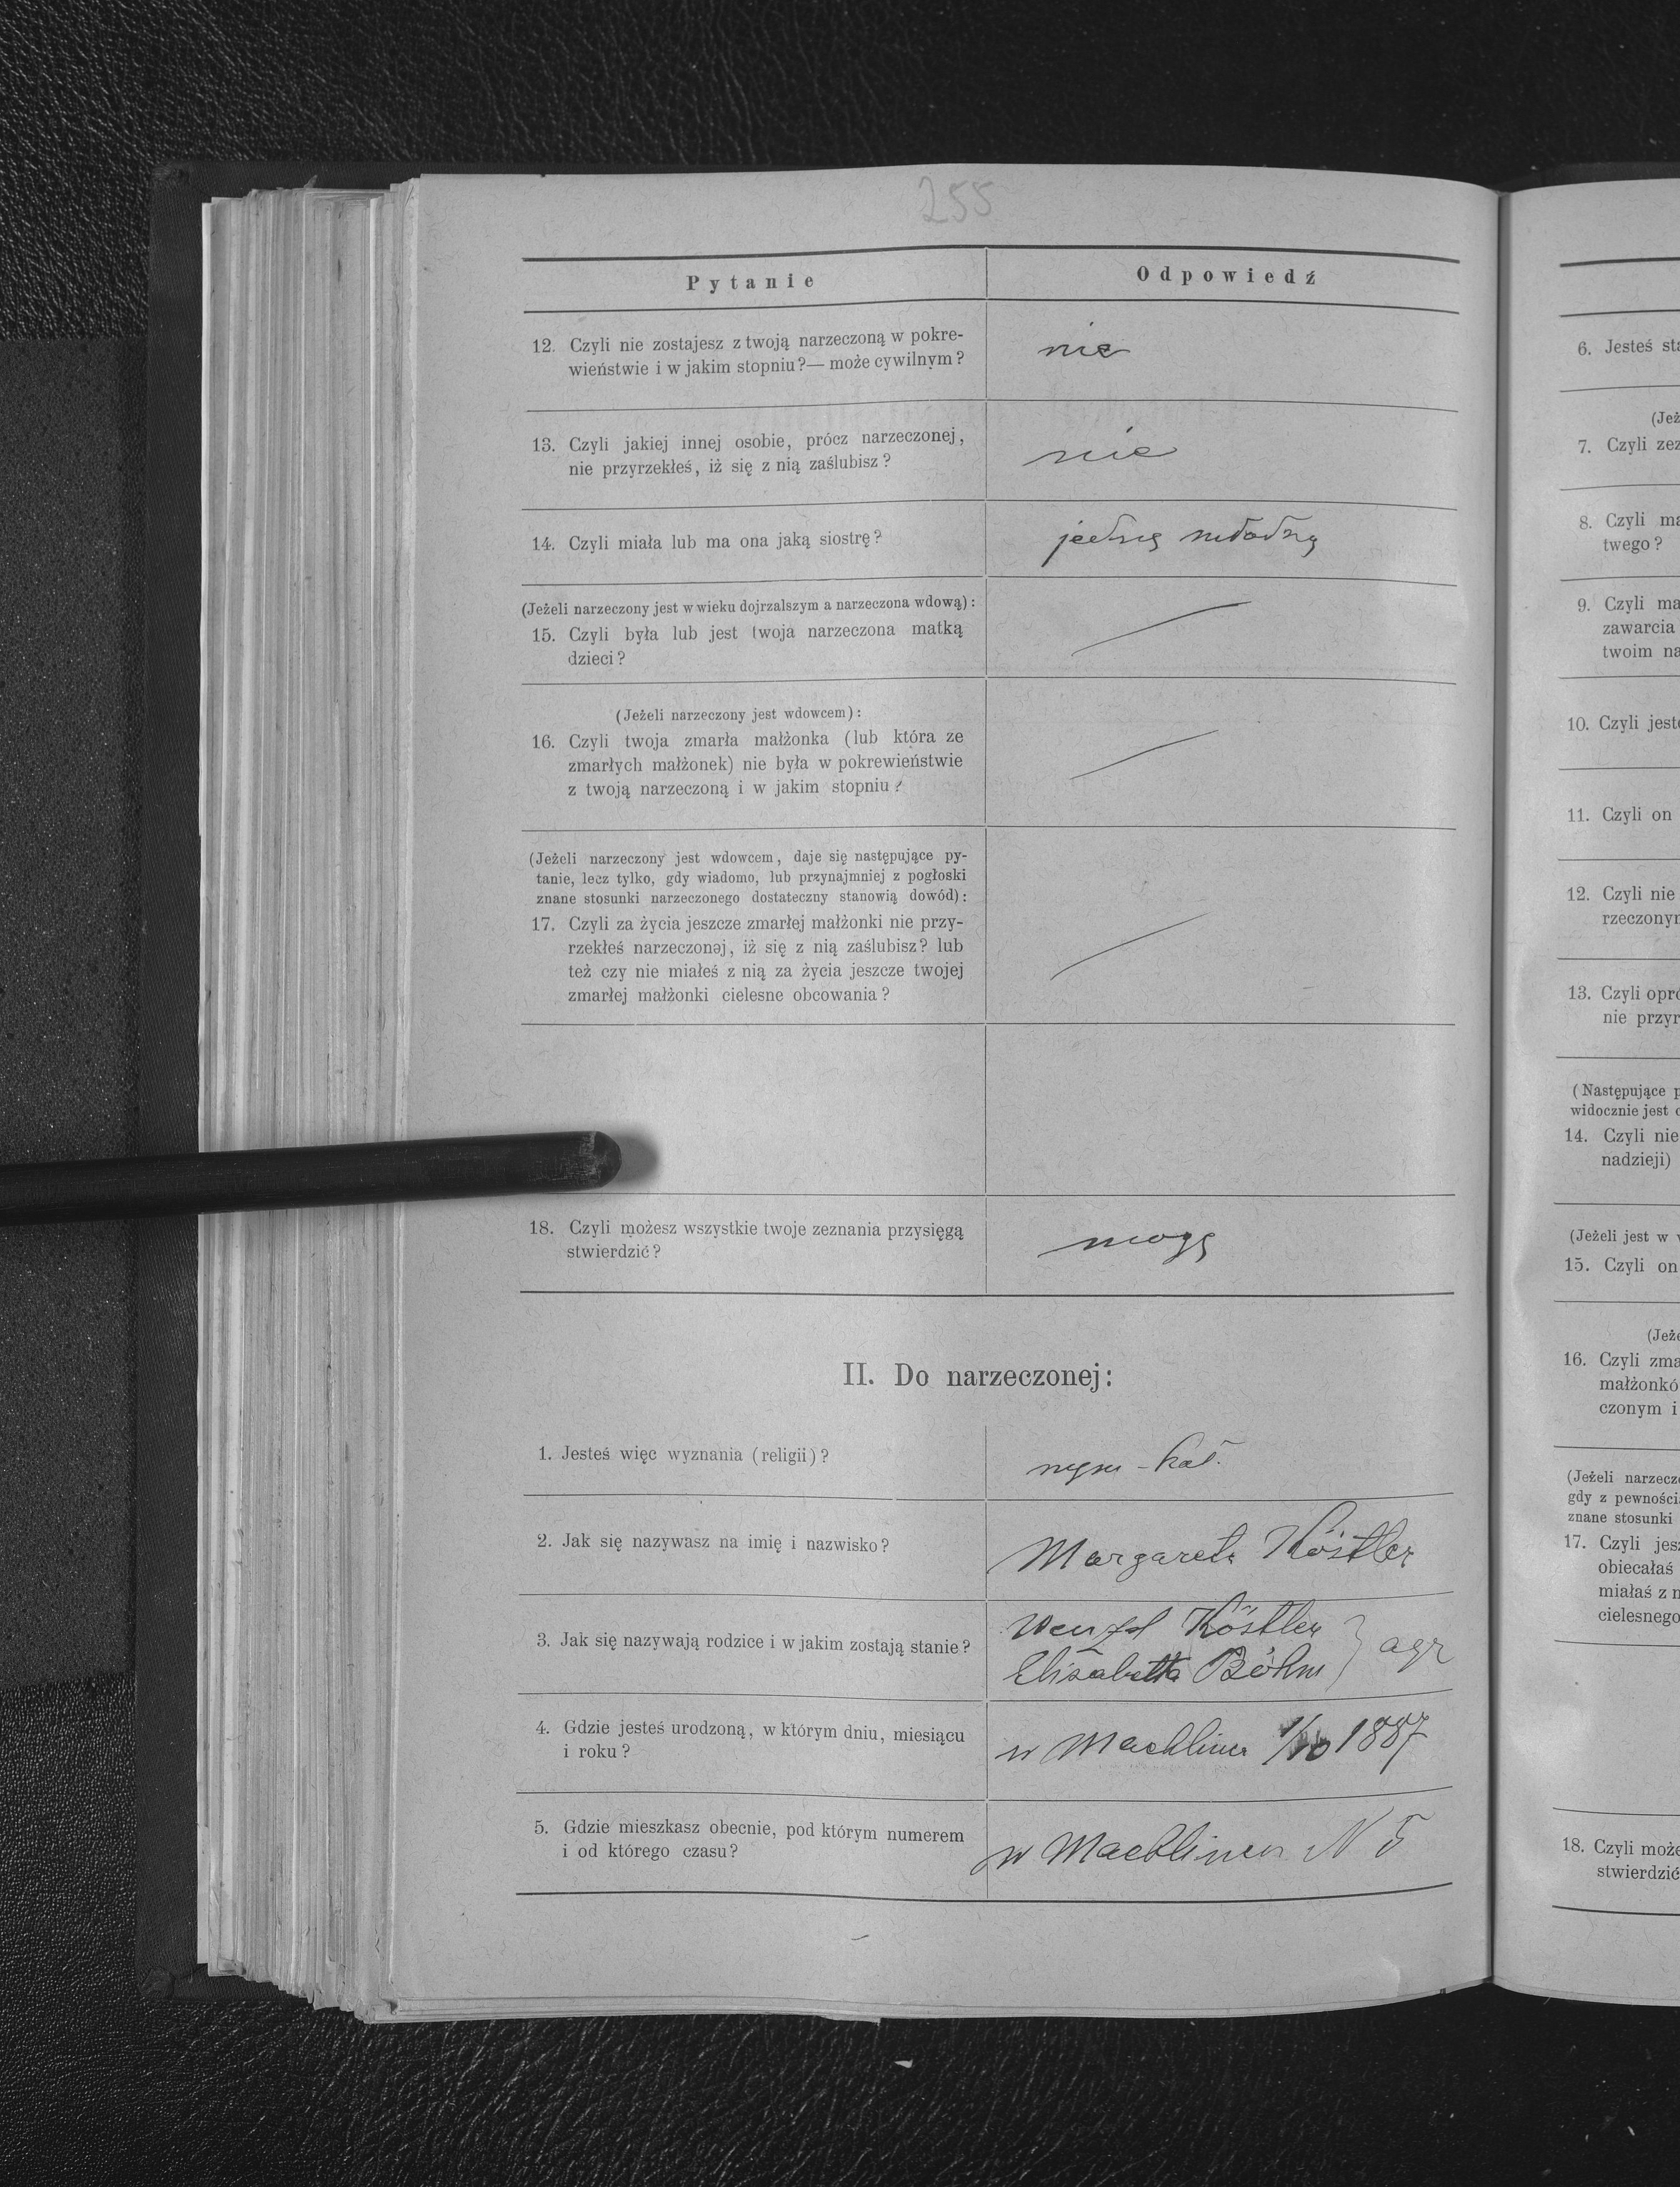 255
Pytanie
Odpowiedź
12. Czyli nie zostajesz z twoją narzeczoną w pokre-
wieństwie i w jakim stopniu?— może cywilnym?
nie
13. Czyli jakiej innej osobie, prócz narzeczonej,
nie przyrzekłeś, iż się z nią zaślubisz?
nie
14. Czyli miała lub ma ona jaką siostrę?
jedną młodszą
(Jeżeli narzeczony jest w wieku dojrzalszym a narzeczona wdową):
15. Czyli była lub jest twoja narzeczona matką
dzieci?
(Jeżeli narzeczony jest wdowcem):
16. Czyli twoja zmarła małżonka (lub która ze
zmarłych małżonek) nie była w pokrewieństwie
z twoją narzeczoną i w jakim stopniu?
(Jeżeli narzeczony jest wdowcem, daje się następujące py-
tanie, lecz tylko, gdy wiadomo, lub przynajmniej z pogłoski
znane stosunki narzeczonego dostateczny stanowią dowód):
17. Czyli za życia jeszcze zmarłej małżonki nie przy-
rzekłeś narzeczonej, iż się z nią zaślubisz? lub
też czy nie miałeś z nią za życia jeszcze twojej
zmarłej małżonki cielesne obcowania?
18. Czyli możesz wszystkie twoje zeznania przysięgą
stwierdzić?
mogę
II. Do narzeczonej:
1. Jesteś więc wyznania (religii)?
rzym-kat.
2. Jak się nazywasz na imię i nazwisko?
Margareta Köstler
3. Jak się nazywają rodzice i w jakim zostają stanie?
Wenzel Köstler
Elisabetta Böhm } agr
4. Gdzie jesteś urodzoną, w którym dniu, miesiącu
i roku?
w Machliniec 1/10 1887
5. Gdzie mieszkasz obecnie, pod którym numerem
i od którego czasu?
w Machliniec N 5
6. Jesteś sta
(Jeż
7. Czyli zez
8. Czyli ma
twego?
9. Czyli ma
zawarcia
twoim na
10. Czyli jeste
11. Czyli on
12. Czyli nie
rzeczonym
13. Czyli opró
nie przyr
(Następujące p
widocznie jest
14. Czyli nie
nadzieji)
(Jeżeli jest w
15. Czyli on
(Jeże
16. Czyli zma
małżonkó
czonym i
(Jeżeli narzecz
gdy z pewności
znane stosunki
17. Czyli jesz
obiecałaś
miałaś z n
cielesnego
18. Czyli może
stwierdzić